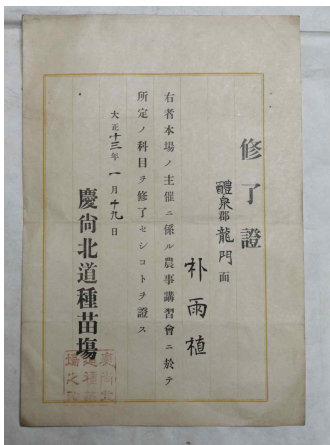 修了證
醴泉郡龍門面
朴雨植
右者本場ノ主催ニ係ル農事講習會ニ於テ
所定ノ科目ヲ修了セシコトヲ證ス
大正十三年一月十九日
慶尙北道種苗場